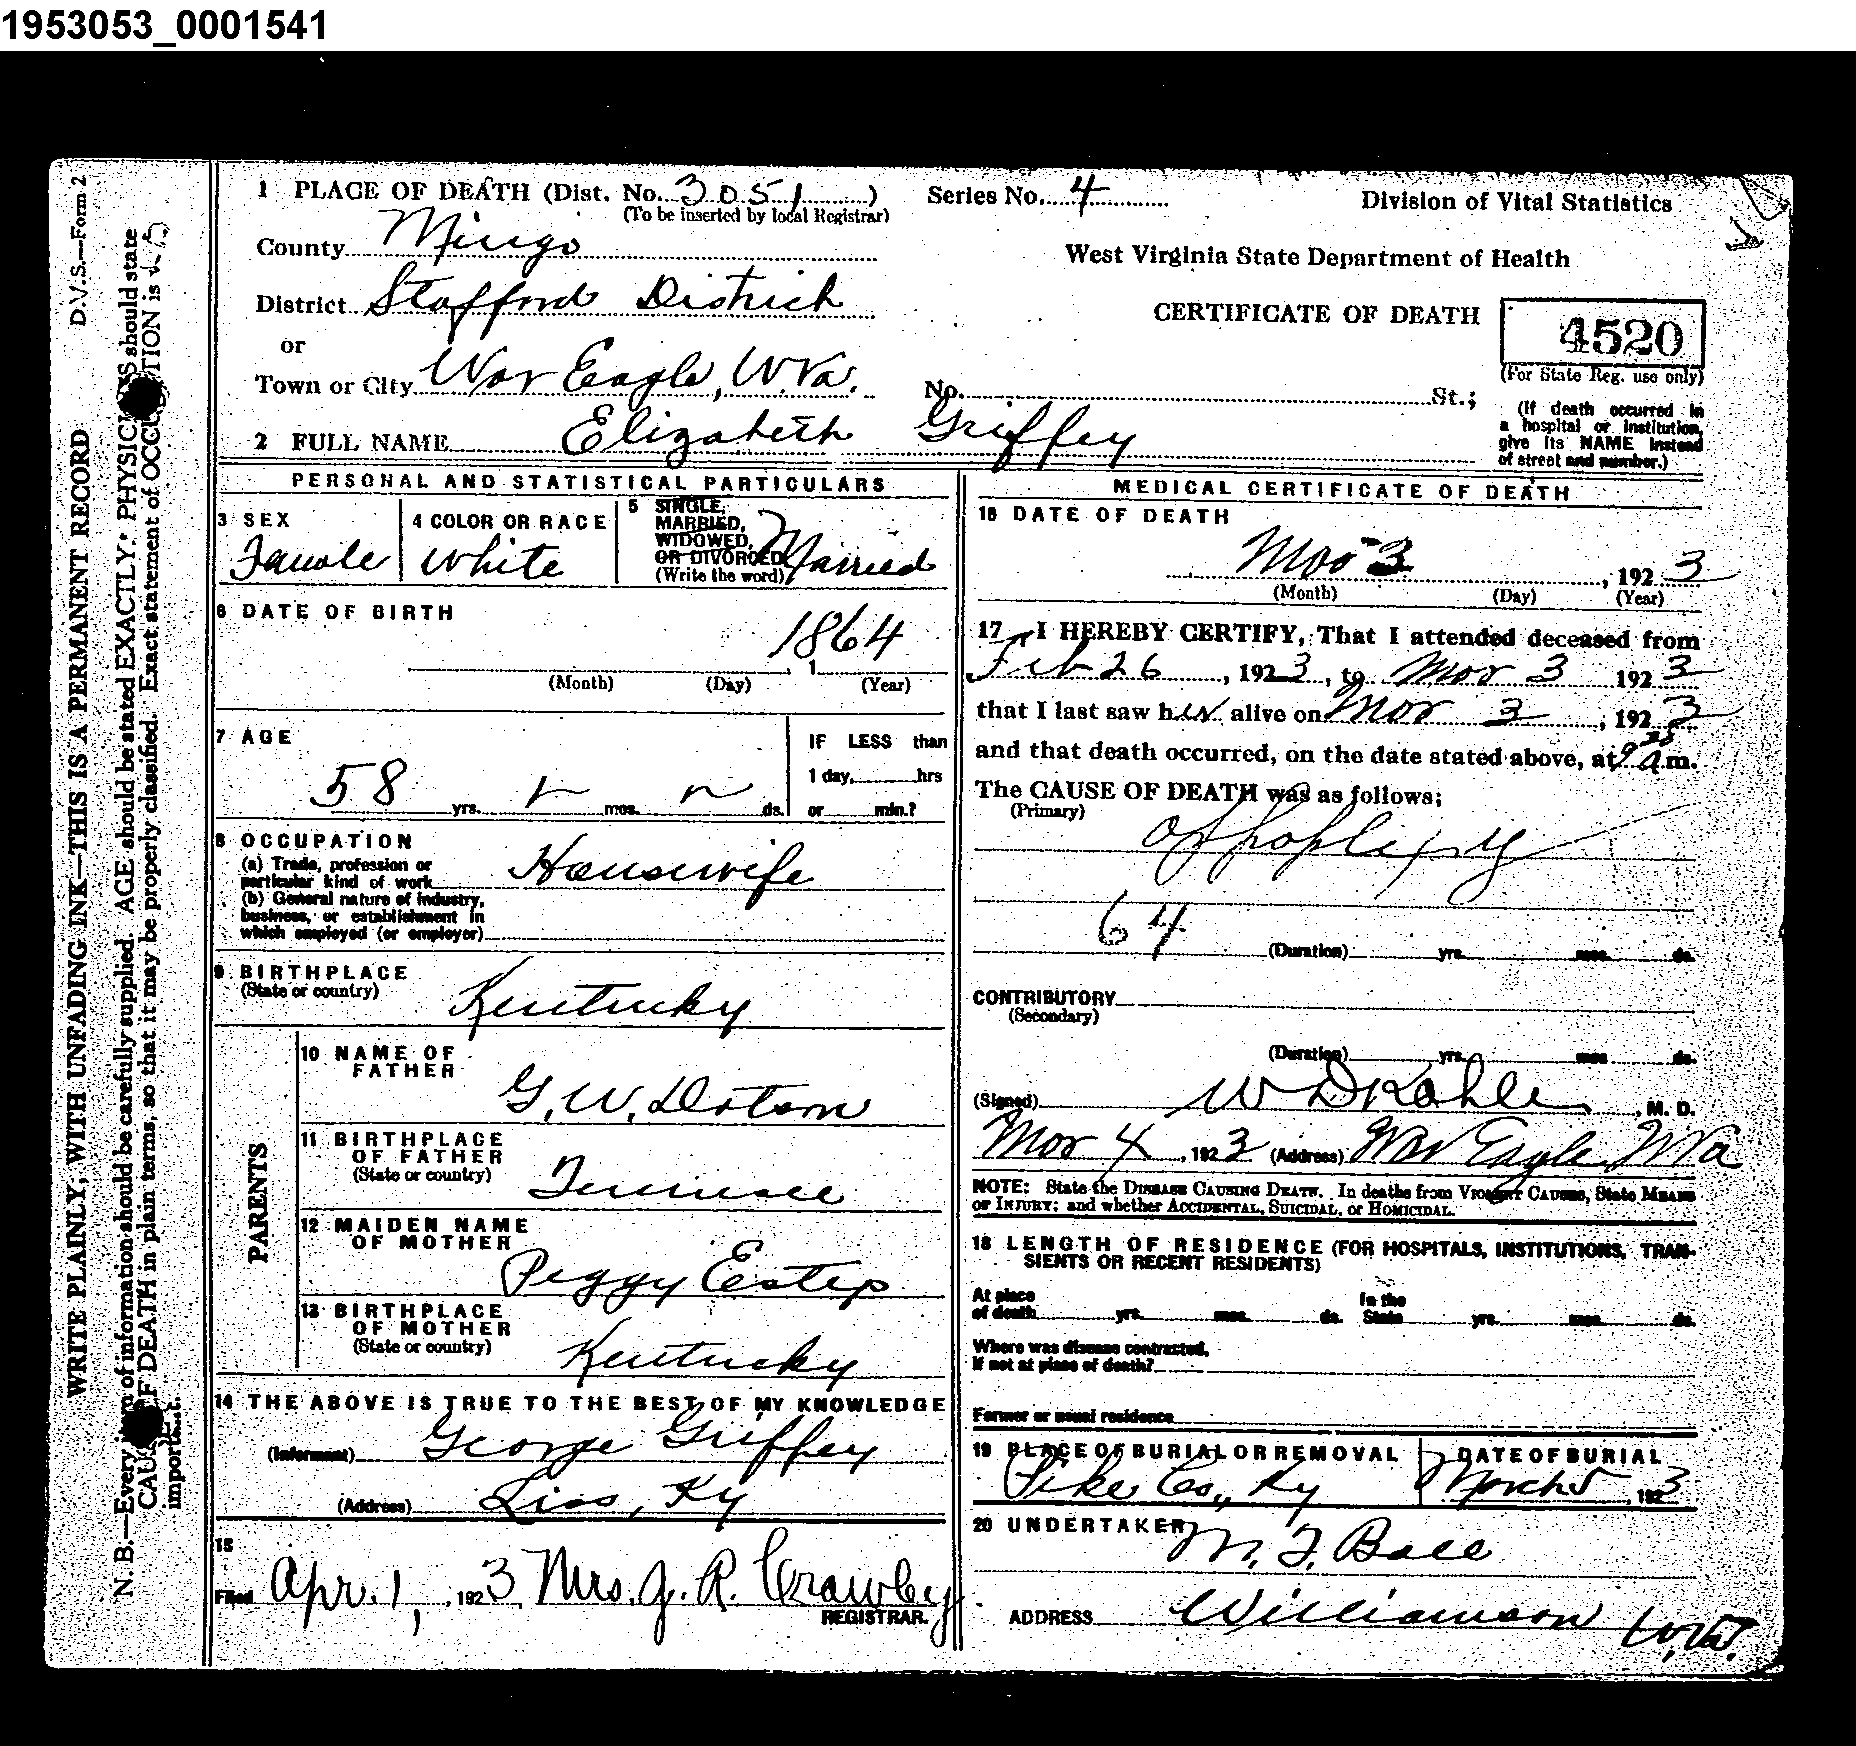 1953053_0001541
1 PLACE OF DEATH (Dist. No. 3051)
(To be inserted by local Registrar)
Series No. 4
Division of Vital Statistics
County Mingo
West Virginia State Department of Health
District Stafford District
CERTIFICATE OF DEATH
4520
(For State Reg. use only)
or
Town or City War Eagle, W.Va.
No. St.;
(If death occurred in
a hospital or institution,
give its NAME instead
of street and number.)
2 FULL NAME Elizabeth Griffey
PERSONAL AND STATISTICAL PARTICULARS
3 SEX
Female
4 COLOR OR RACE
White
5 SINGLE,
MARRIED,
WIDOWED,
OR DIVORCED
(Write the word)
Married
6 DATE OF BIRTH
1864
(Month) (Day) (Year)
7 AGE
58 yrs. mos. ds.
IF LESS than
1 day, hrs
or min.?
8 OCCUPATION
(a) Trade, profession or
particular kind of work
Housewife
(b) General nature of industry,
business, or establishment in
which employed (or employer)
9 BIRTHPLACE
(State or country)
Kentucky
PARENTS
10 NAME OF
FATHER
G. W. Dotson
11 BIRTHPLACE
OF FATHER
(State or country)
Tennessee
12 MAIDEN NAME
OF MOTHER
Peggy Estep
13 BIRTHPLACE
OF MOTHER
(State or country)
Kentucky
14 THE ABOVE IS TRUE TO THE BEST OF MY KNOWLEDGE
(Informant) George Griffey
(Address) Ky
15
Filed Apr. 1, 1923 Mrs. J. R. Crawley
REGISTRAR.
MEDICAL CERTIFICATE OF DEATH
16 DATE OF DEATH
Mar 3, 1923
(Month) (Day) (Year)
17 I HEREBY CERTIFY, That I attended deceased from
Feb 26, 1923, to Mar 3 1923
that I last saw her alive on Mar 3, 1923
and that death occurred, on the date stated above, at 9 25 a.m.
The CAUSE OF DEATH was as follows;
(Primary)
Appoplexy
64
(Duration) yrs. mos. ds.
CONTRIBUTORY
(Secondary)
(Duration) yrs. mos. ds.
(Signed) W D Kahle, M. D.
Mar 4, 1923 (Address) War Eagle W Va
NOTE: State the DISEASE CAUSING DEATH. In deaths from VIOLENT CAUSES, State MEANS
OF INJURY; and whether ACCIDENTAL, SUICIDAL, or HOMICIDAL.
18 LENGTH OF RESIDENCE (FOR HOSPITALS, INSTITUTIONS, TRAN-
SIENTS OR RECENT RESIDENTS)
At place
of death yrs. mos. ds.
In the
State yrs. mos. ds.
Where was disease contracted,
if not at place of death?
Former or usual residence
19 PLACE OF BURIAL OR REMOVAL
Pike Co., Ky
DATE OF BURIAL
March 5, 1923
20 UNDERTAKER
M. T. Ball
ADDRESS Williamson W.Va.
D.V.S.—Form 2
WRITE PLAINLY, WITH UNFADING INK—THIS IS A PERMANENT RECORD
N. B.—Every item of information should be carefully supplied. AGE should be stated EXACTLY. PHYSICIANS should state
CAUSE OF DEATH in plain terms, so that it may be properly classified. Exact statement of OCCUPATION is
important.